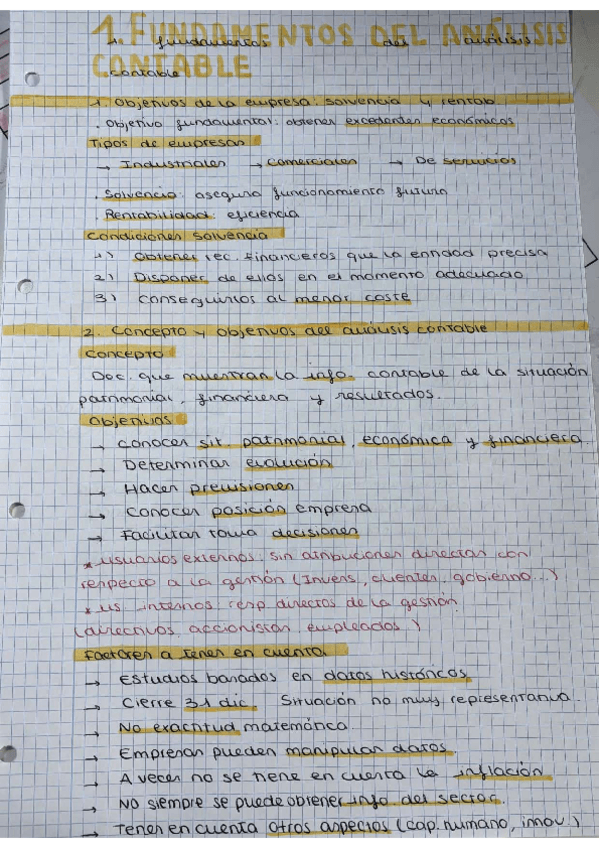 1. FUNDAMENTOS DEL ANÁLISIS
fundamentos del análisis
CONTABLE
contable
1. Objetivos de la empresa: solvencia y rentab.
· Objetivo fundamental: obtener excedentes económicos
Tipos de empresas
→ Industriales → Comerciales → De servicios
· Solvencia: asegura funcionamiento futuro
· Rentabilidad: eficiencia
Condiciones solvencia
1) Obtener rec. financieros que la entidad precisa
2) Disponer de ellos en el momento adecuado
3) Conseguirlos al menor coste
2. Concepto y objetivos del análisis contable
Concepto
Doc. que muestran la info. contable de la situación
patrimonial, financiera y resultados.
Objetivos
→ Conocer sit. patrimonial, económica y financiera.
→ Determinar evolución
→ Hacer previsiones
→ Conocer posición empresa
→ Facilitar toma decisiones
* Usuarios externos: sin atribuciones directas con
respecto a la gestión (Invers, clientes, gobierno...)
* Us internos: resp. directos de la gestión
(directivos, accionistas, empleados)
Factores a tener en cuenta
→ Estudios basados en datos históricos
→ Cierre 31 dic. Situación no muy representativa.
→ No exactitud matemática.
→ Empresas pueden manipular datos.
→ A veces no se tiene en cuenta la inflación
→ No siempre se puede obtener info del sector.
→ Tener en cuenta otros aspectos (cap. humano, innov.)